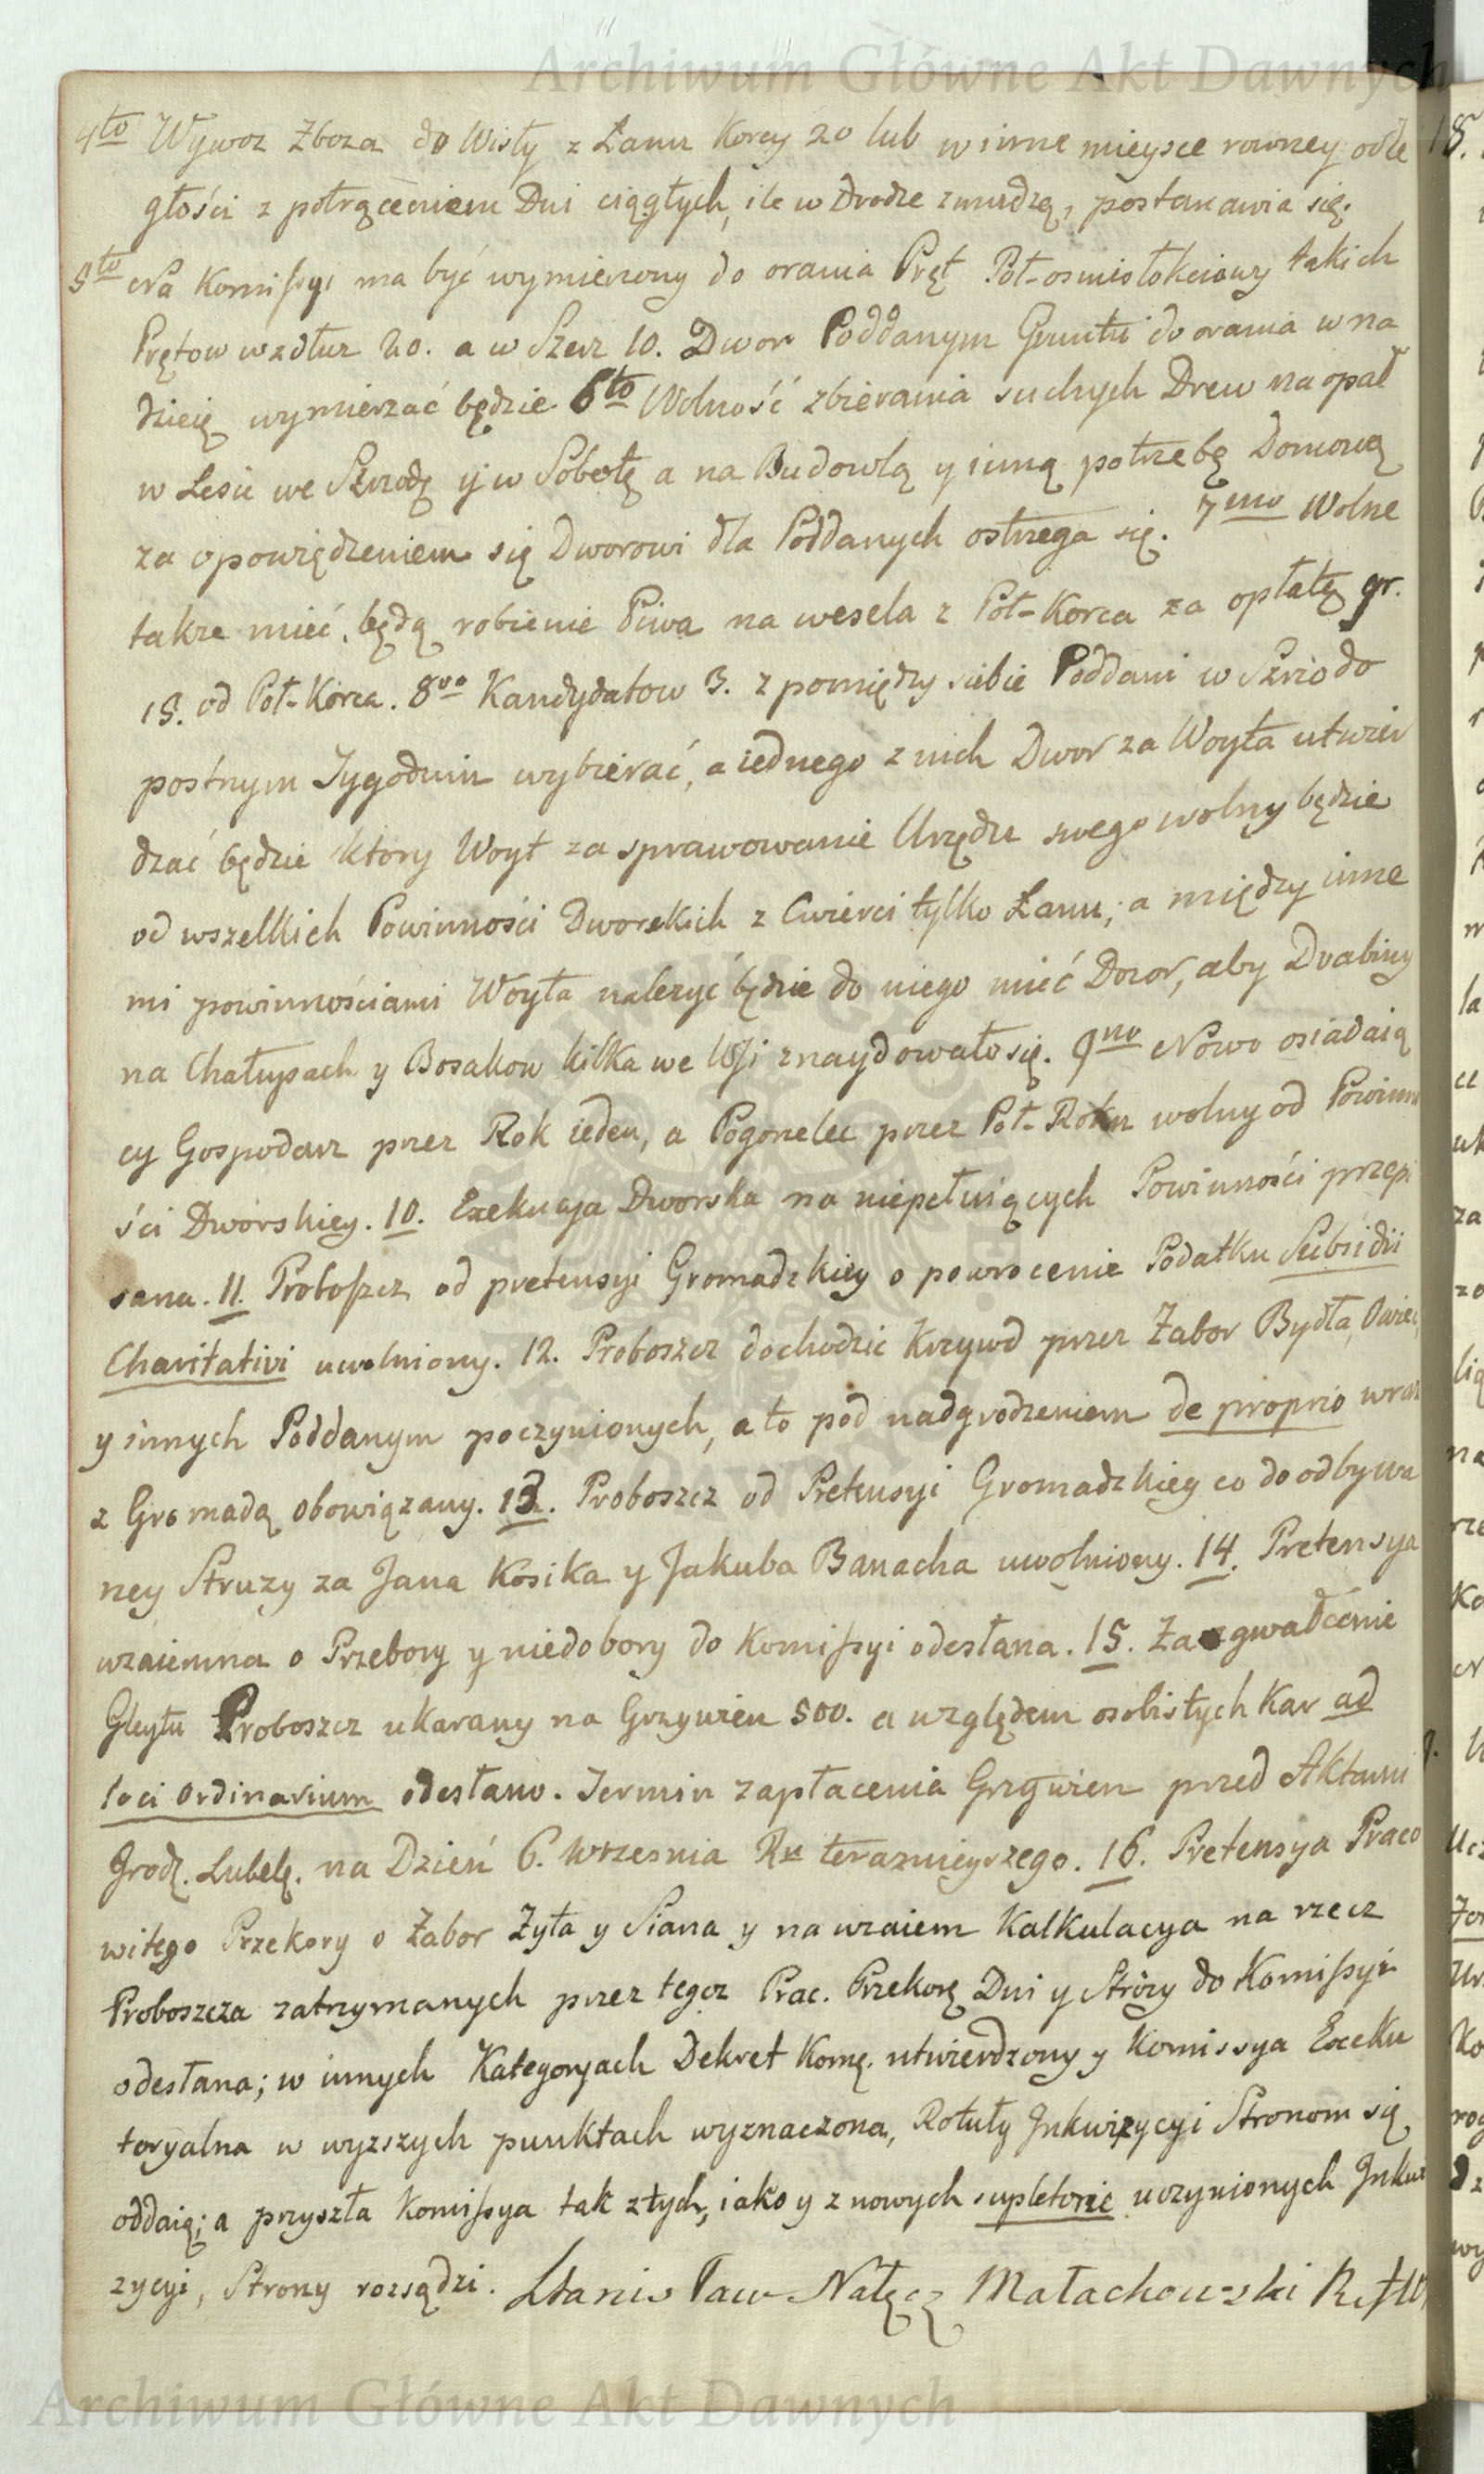 Archiwum Główne Akt Dawnych
4to Wywoz Zboza do Wisły z Łanu Korcy 20 lub w inne mieysce rowney odle
głości z potrąceniem Dni ciągłych, ile w drodze zmudzą, postanawia się.
5to Na Komissyi ma być wymierzony do orania Pręt Poł-osmiołokciowy takich
Prętow wzdłuz 20. a w Szerz 10. Dwor Poddanym Gruntu do orania w na
dzieię wymierzać będzie 6to Wolność zbierania suchych Drew na opał
w Lesie we Szrodę y w Sobotę a na Budowlą y inną potrzebę Domową
za opowiędzeniem się Dworowi dla Poddanych ostrzega się. 7mo Wolne
takze mieć będą robienie Piwa na wesela z Poł-Korca za opłatę gr.
15. od Poł-Korca. 8vo Kandydatow 3. z pomiędzy siebie Poddani w Szrzodo
postnym Tygodniu wybierać, a iednego z nich Dwor za Woyta utwier
dzać będzie ktory Woyt za sprawowanie Urzędu swego wolny będzie
od wszelkich Powinności Dworskich z Cwierci tylko Łanu; a między inne
mi powinnościami Woyta nalezyć będzie do niego mieć Dozor, aby Drabiny
na Chałupach y Bosakow kilka we Wsi znaydowało się. 9no Nowo osiadaią
cy Gospodarz przez Rok ieden, a Pogorzelec przez Poł-Roku wolny od Powinno
ści Dworskiey. 10. Exekucya Dworska na niepełniących Powinności przepi
sana. 11. Proboszcz od pretensyi Gromadzkiey o powrocenie Podatku Subsidii
Charitativi uwolniony. 12. Proboszcz dochodzić Krzywd przez Zabor Bydła, Owiec,
y innych Poddanym poczynionych, a to pod nadgrodzeniem de proprio wraz
z Gromadą obowiązany. 13. Proboszcz od Pretensyi Gromadzkiey co do odbywa
ney Struzy za Jana Kosika y Jakuba Banacha uwolniony. 14. Pretensya
wzaiemna o Przebory y niedobory do Komissyi odesłana. 15. Za zgwałcenie
Gleytu Proboszcz ukarany na Grzywien 500. a względem osobistych Kar ad
loci Ordinarium odesłano. Termin zapłacenia Grzywien przed Aktami
Grodz. Lubelę. na Dzień 6. Wrzesnia Rku terazmieyszego. 16. Pretensya Praco
witego Przekory o Zabor Zyta y Siana y na wzaiem Kalkulacya na rzecz
Proboszcza zatrzymanych przez tegoz Prac. Przekorę Dni y Strózy do Komissyi
odesłana; w innych Kategoryach Dekret Komę. utwierdzony y Komissya Exeku
toryalna w wyzszych punktach wyznaczona, Rotuły Inkwizycyi Stronom się
oddaią; a przyszła Komissya tak z tych, iako y z nowych supletorie uczynionych Inkwi
zycyi, Strony rozsądzi. Stanisław Nałęcz Małachowski R.
Archiwum Główne Akt Dawnych